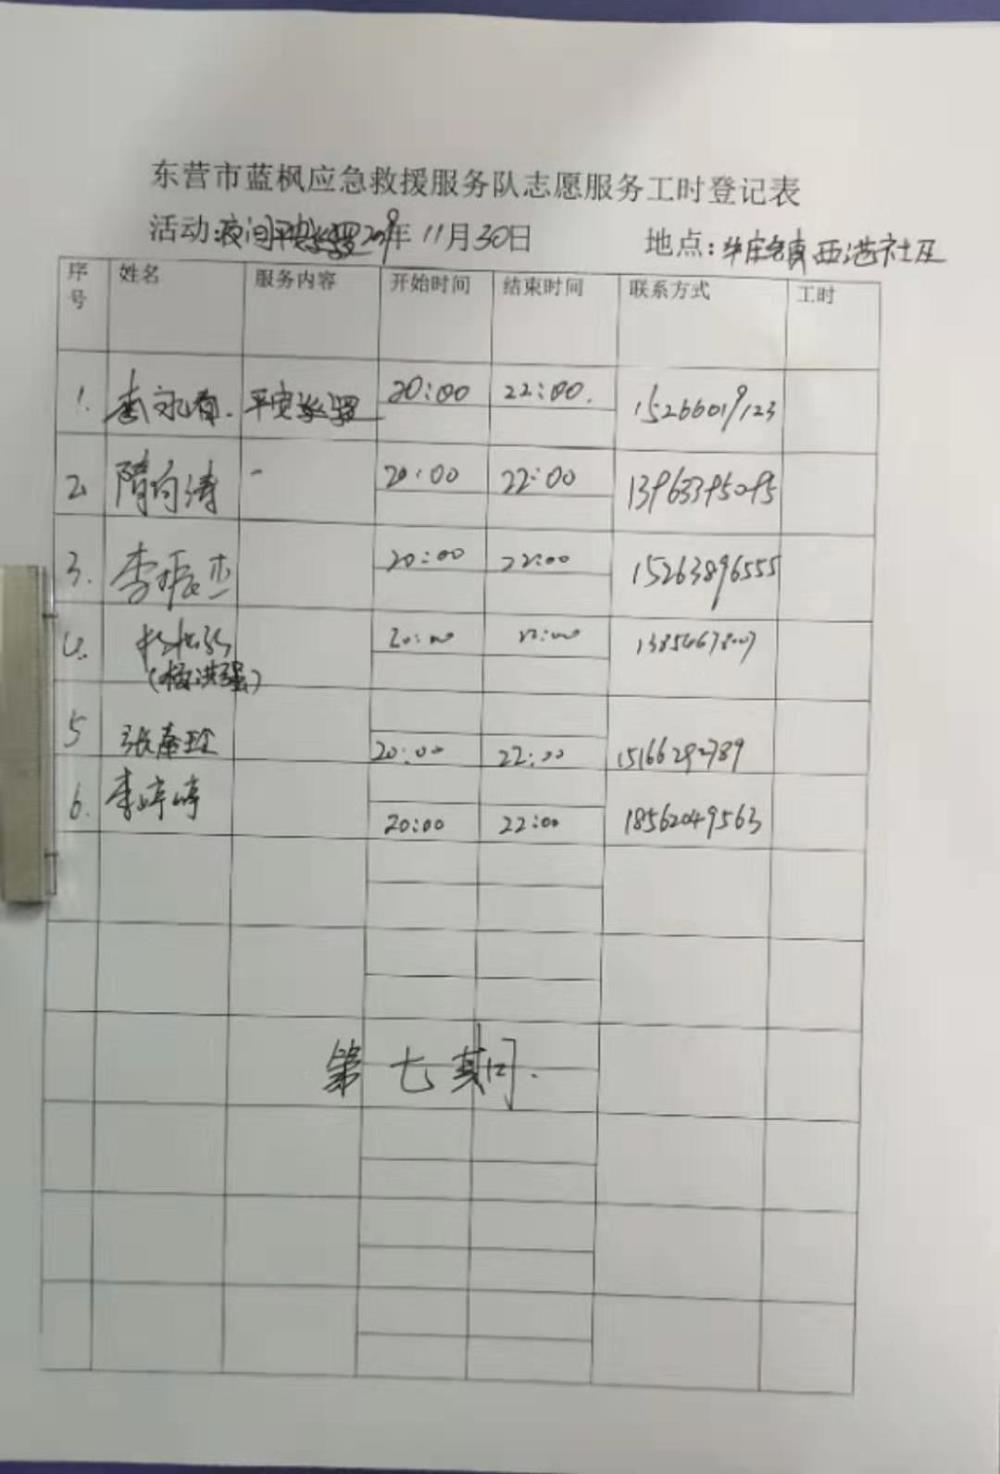 东营市蓝枫应急救援服务队志愿服务工时登记表
活动:夜间平安巡逻2019年11月30日 地点:牛庄镇西港社区
序号 姓名 服务内容 开始时间 结束时间 联系方式 工时
1. 李永春. 平安巡逻 20:00 22:00. 15266019123
2 隋向涛 20:00 22:00 13963395095
3. 李振杰 20:00 22:00 15263896555
4. 20:00 22:00
(杨洪强)
5 张春玲 20:00 22:00 15166292789
6. 李婷婷 20:00 22:00 18562049563
第七期.